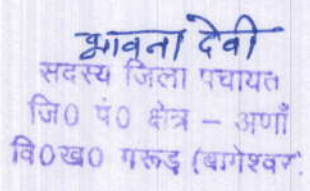 भावना देवी
सदस्य जिला पंचायत
जि0 पं0 क्षेत्र – अणाँ
वि0ख0 गरूड़ (बागेश्वर)